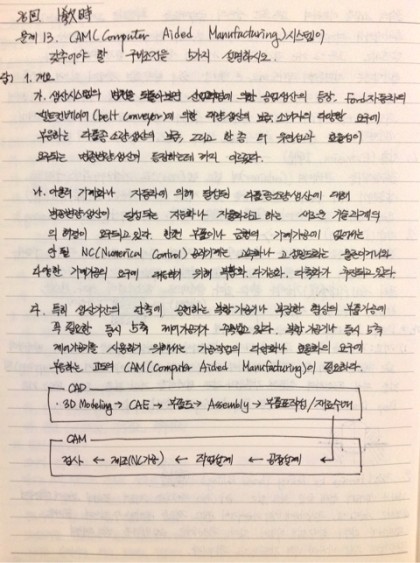 문제 13. CAM(Computer Aided Manufacturing)시스템이
갖추어야 할 구비조건을 5가지 설명하시오.
답) 1. 개요
가. 생산시스템의 발전을 산업혁명에 의한 공업생산의 등장, Ford자동차의
컨베이어(belt conveyor)에 의한 대량생산의 보급, 소비자의 다양한 요구에
부응하는 다품종소량생산의 보급, 그리고 한층 더 유연성과 효율성이
요구되는 변종변량생산이 등장하는데 까지 이르렀다.
나. 기계화나 자동화에 의해 달성된 다품종소량생산에 대해
변종변량생산이 자동화나 하는 새로운 기술과제의
의 해결이 요구되고 있다. 한편 부품이나 금형의 기계가공에 없어서는
안 될 NC(Numerical Control) 공작기계는 고속화나 고정밀도화는
다양한 기계가공의 요구에 대응하기 위해 복합화 다기능화, 다축화가 추진되고 있다
다. 특히 생산기간의 단축에 공헌하는 복합가공기나 복잡한 형상의 부품가공에
꼭 필요한 동시 5축 제어가공기가 있다. 복합가공기나 동시 5축
제어가공기를 사용하기 위해서는 가공작업의 다양화나 효율화의 요구에
부응하는 고도의 CAM(Computer Aided Manufacturing)이 필요하다.
CAD
· 3D Modeling → CAE → 부품도 → Assembly → 부품표작성/재료수배
CAM
검사 ← 제조(NC가공) ← 작업설계 ← 공정설계 ←